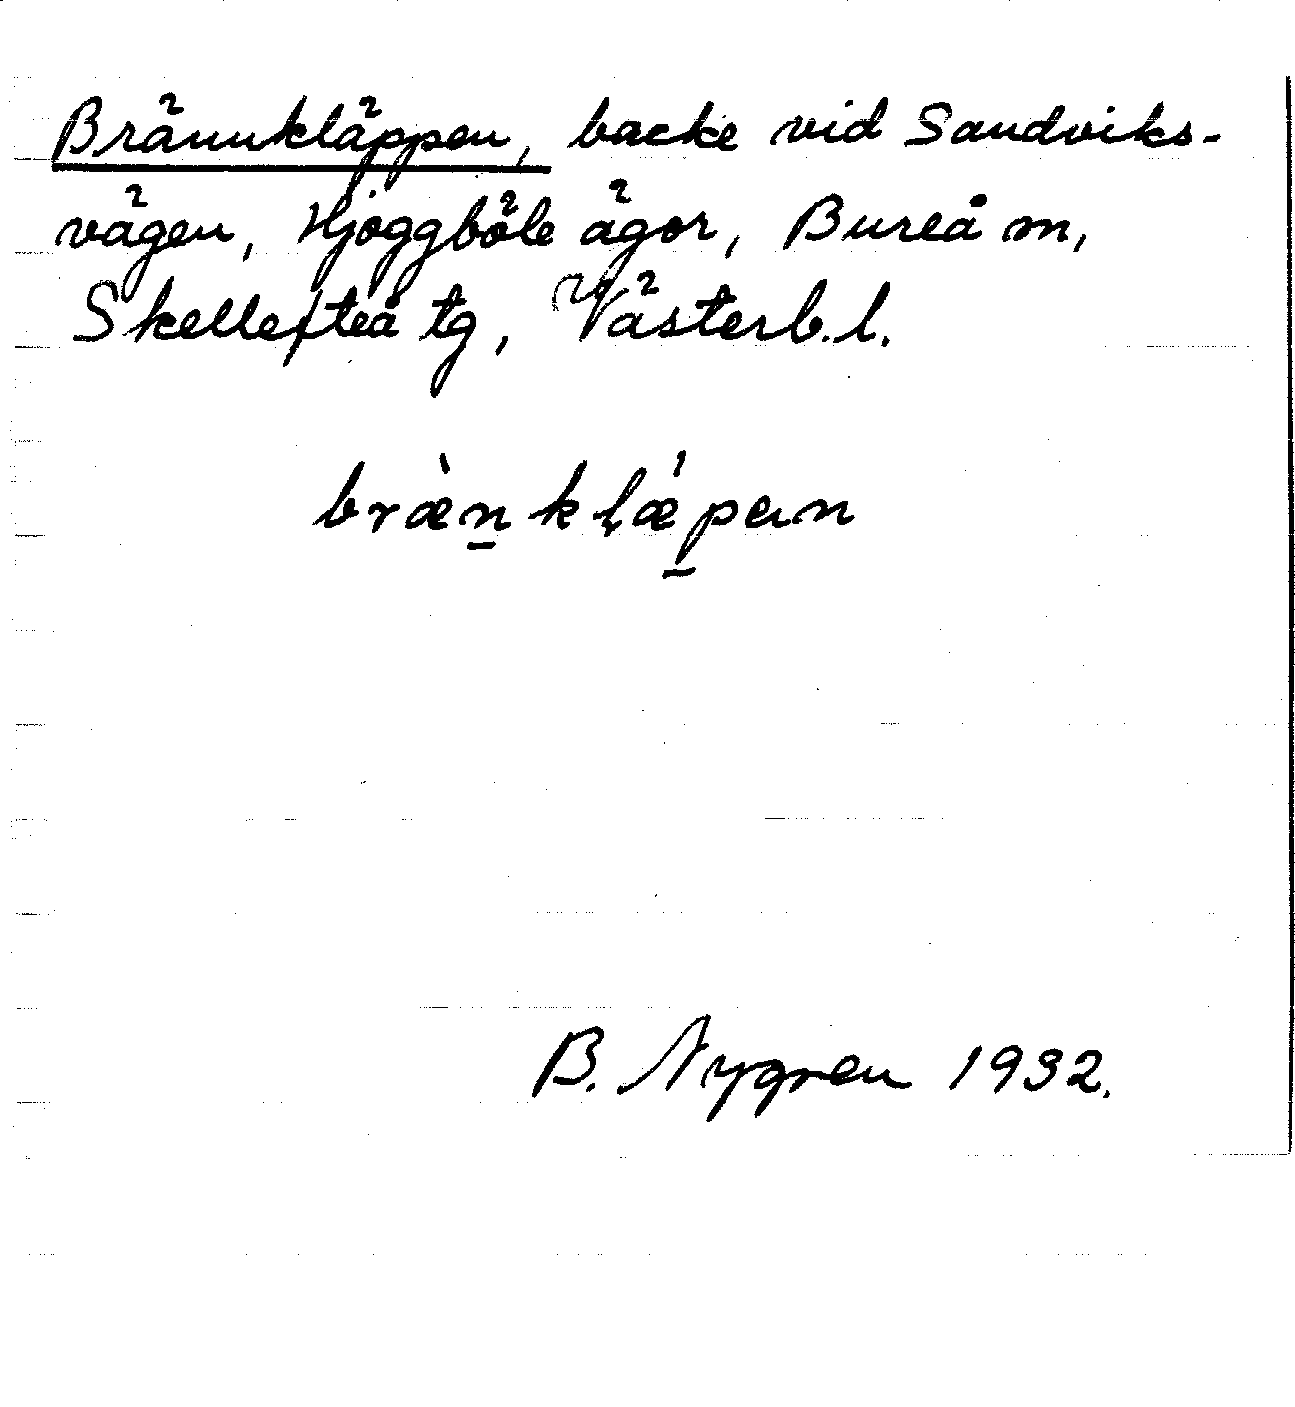 Brännkläppen, backe vid Sandviks-
vägen, Hjoggböle ägor, Bureå m,
Skellefteå tg, Västerb. l.
bræ̀n̠kḷǽp̠ən
B. Nygren 1932.